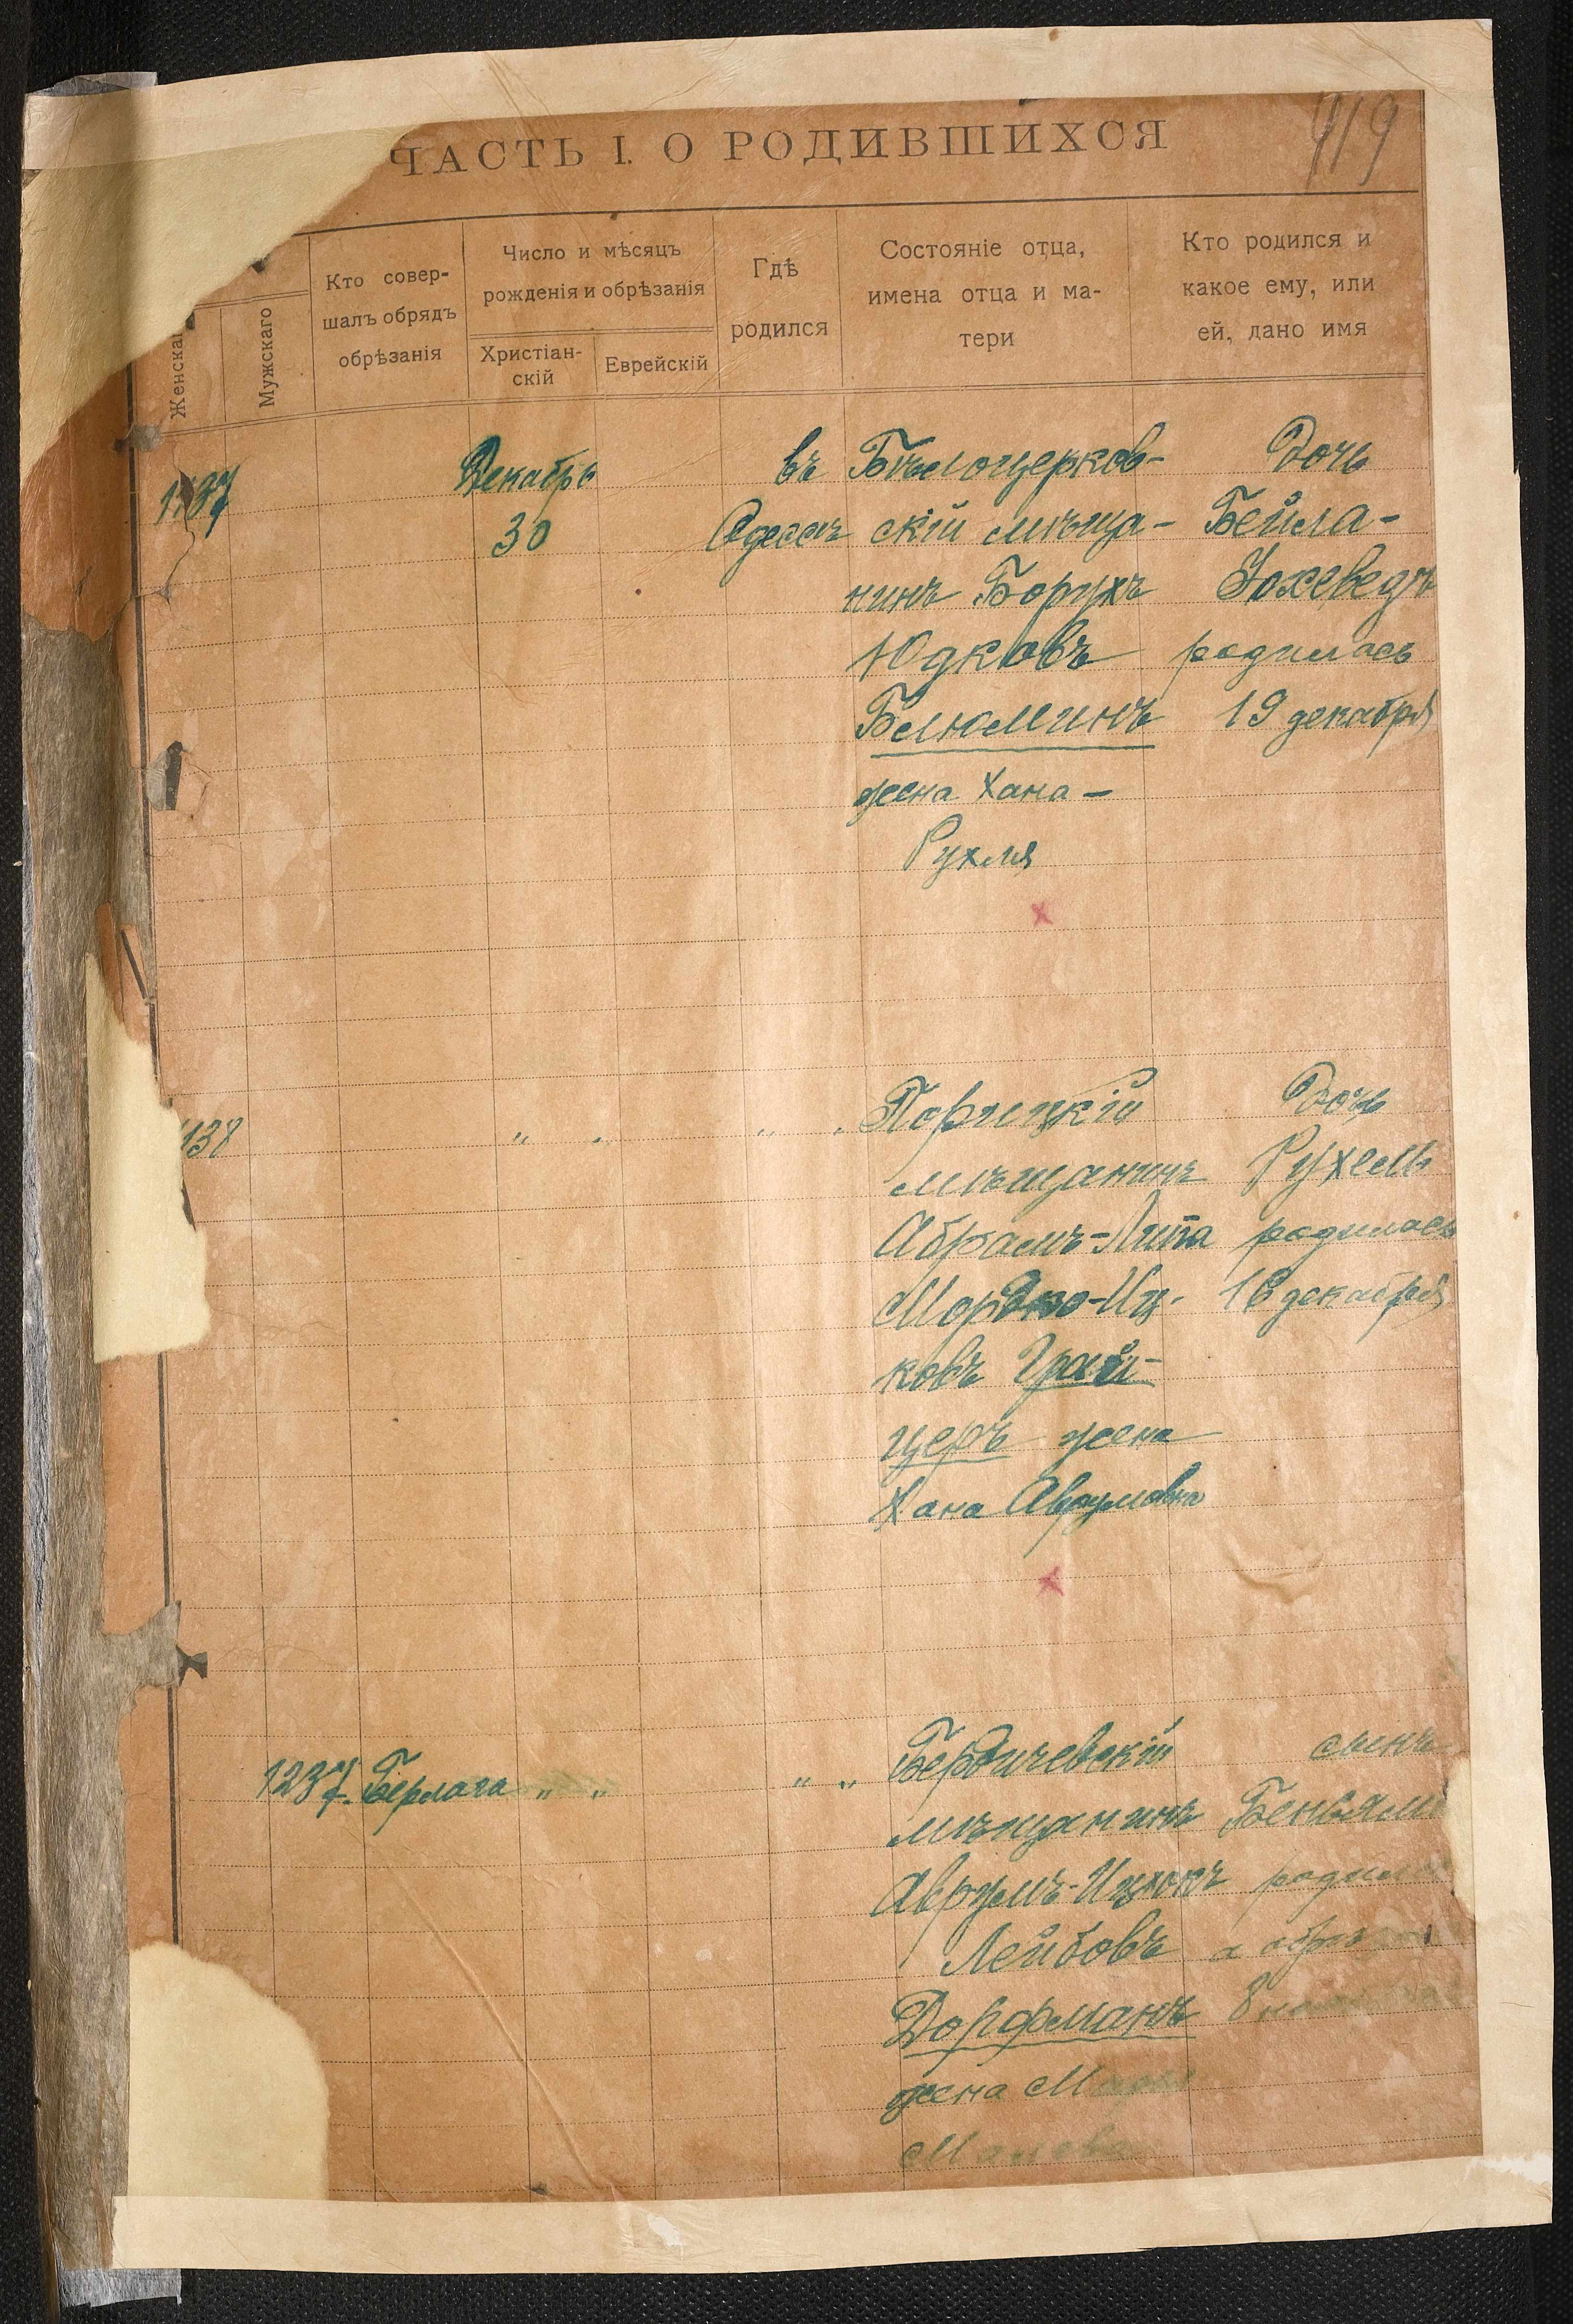 919
ЧАСТЬ I. О РОДИВШИХСЯ
Женскаг
Мужскаго
Кто совер-
шалъ обрядъ
обрѣзанія
Число и мѣсяцъ
рожденія и обрѣзанія
Христіан-
скій
Еврейскій
Гдѣ
родился
Состояніе отца,
имена отца и ма-
тери
Кто родился и
какое ему, или
ей, дано имя
1137
Декабрь
30
въ
Одессѣ
Бѣлоцерков-
скій мѣща-
нинъ Борухъ
Юдковъ
Блюминъ
жена Хана-
Рухля
Дочь
Бейла-
Іохеведъ
родилась
19 декабря
138
" " " "
Порицкій
мѣщанинъ
Абрамъ-Липа
Мордко-Иц-
ковъ Грай-
церъ жена
Хана Аврумовна
Дочь
Рухель
родилась
16 декабря
1237. Берлага " " " "
Бердичевскій
мѣщанинъ
Аврумъ-Ицхокъ
Лейбовъ
Дорфманъ
жена
сынъ
Беньями
родил
а обрѣзан
8